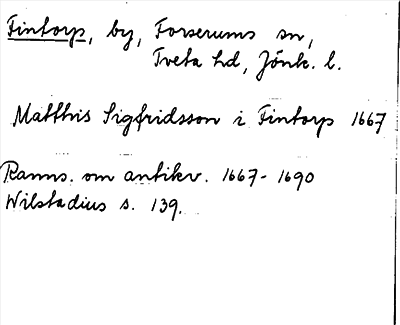 Fintorp, by, Forserums sn,
Tveta hd, Jönk. l.
Matthis Sigfridsson i Fintorp 1667
Ranns. om antikv. 1667-1690
Wilstadius s. 139.